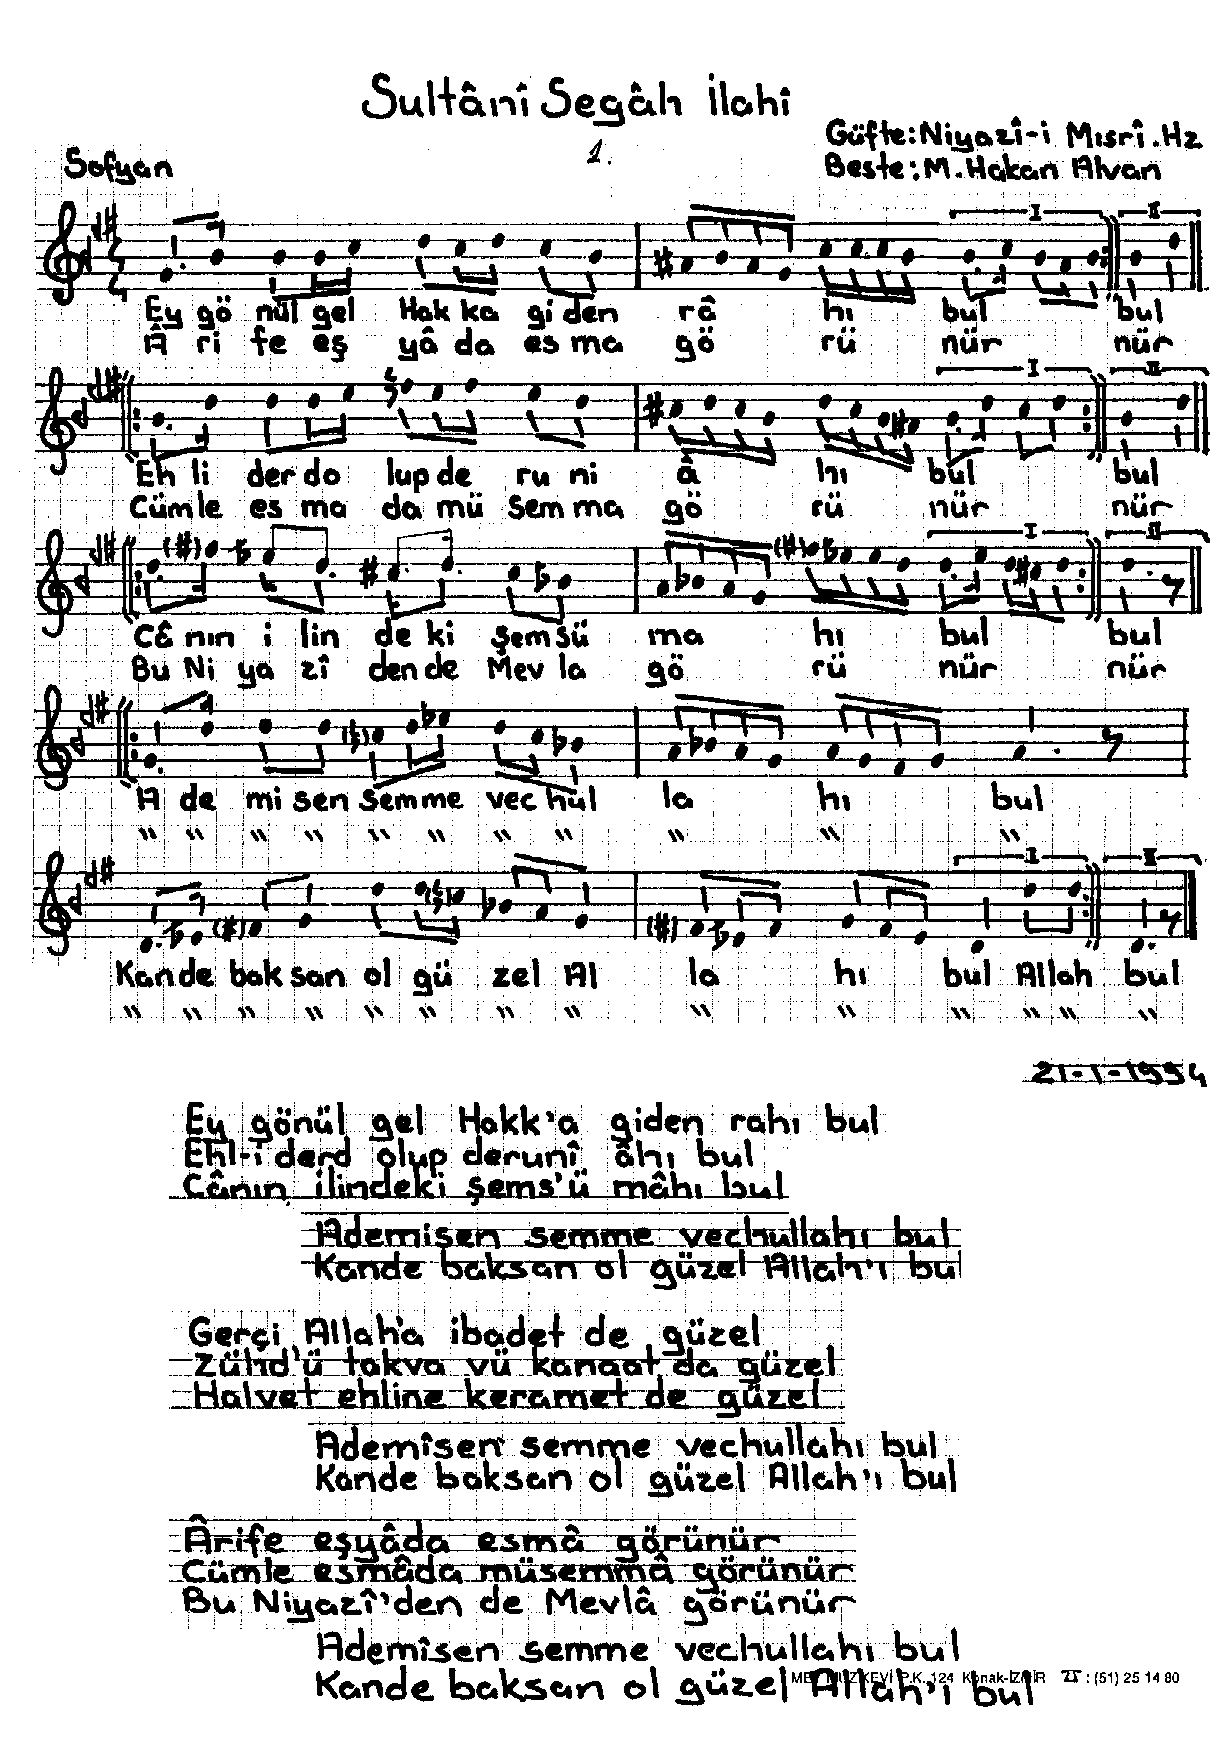 Sultânî Segâh İlahî
1.
Güfte: Niyazî-i Mısrî.Hz
Sofyan
Beste: M. Hakan Alvan
I II
Ey gö nül gel Hak ka gi den râ hı bul bul
Â ri fe eş yâ da es ma gö rü nür nür
I II
Eh li der do lup de ru ni â hı bul bul
Cüm le es ma da mü sem ma gö rü nür nür
I II
Câ nın i lin de ki şem sü ma hı bul bul
Bu Ni ya zî den de Mev la gö rü nür nür
A de mi sen sem me vec hul la hı bul
" " " " " " " " " " "
I II
Kan de bak san ol gü zel Al la hı bul Allah bul
" " " " " " " " " " " " " "
21-1-1994
Ey gönül gel Hakk'a giden rahı bul
Ehl-i derd olup derunî âhı bul
Cânın ilindeki şems'ü mâhı bul
Ademisen semme vechullahı bul
Kande baksan ol güzel Allah'ı bul
Gerçi Allah'a ibadet de güzel
Zühd'ü takva vü kanaat da güzel
Halvet ehline keramet de güzel
Ademîsen semme vechullahı bul
Kande baksan ol güzel Allah'ı bul
Ârife eşyâda esmâ görünür
Cümle esmâda müsemmâ görünür
Bu Niyazî'den de Mevlâ görünür
Ademîsen semme vechullahı bul
Kande baksan ol güzel Allah'ı bul
P.K. 124 Konak-İZMİR ☎ : (51) 25 14 80